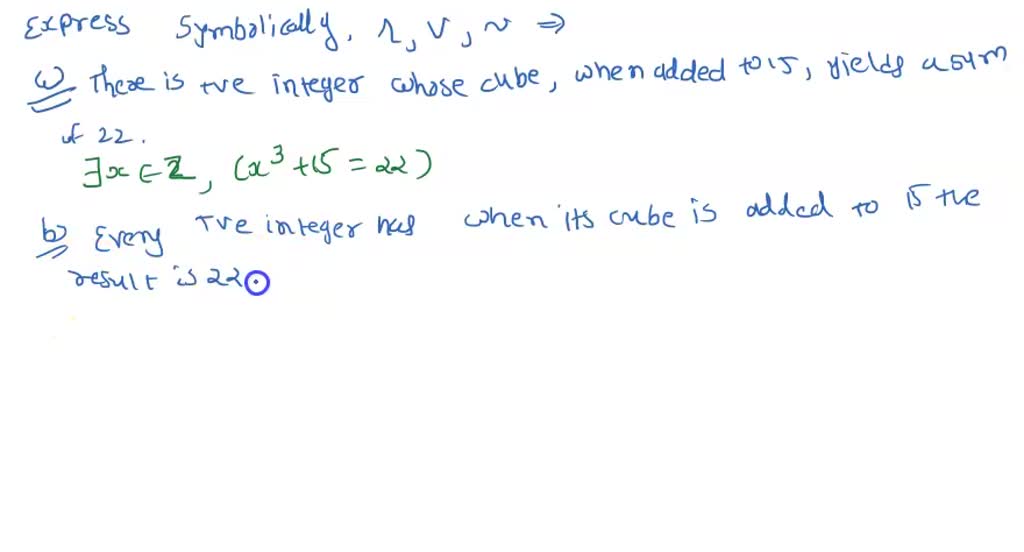 Express Symbolically, ∧, ∨, ~ ⇒
a) There is +ve integer whose cube, when added to 15, yields a sum
of 22.
∃x ∈ Z, (x³ + 15 = 22)
b) Every +ve integer has when its cube is added to 15 the
result is 22.